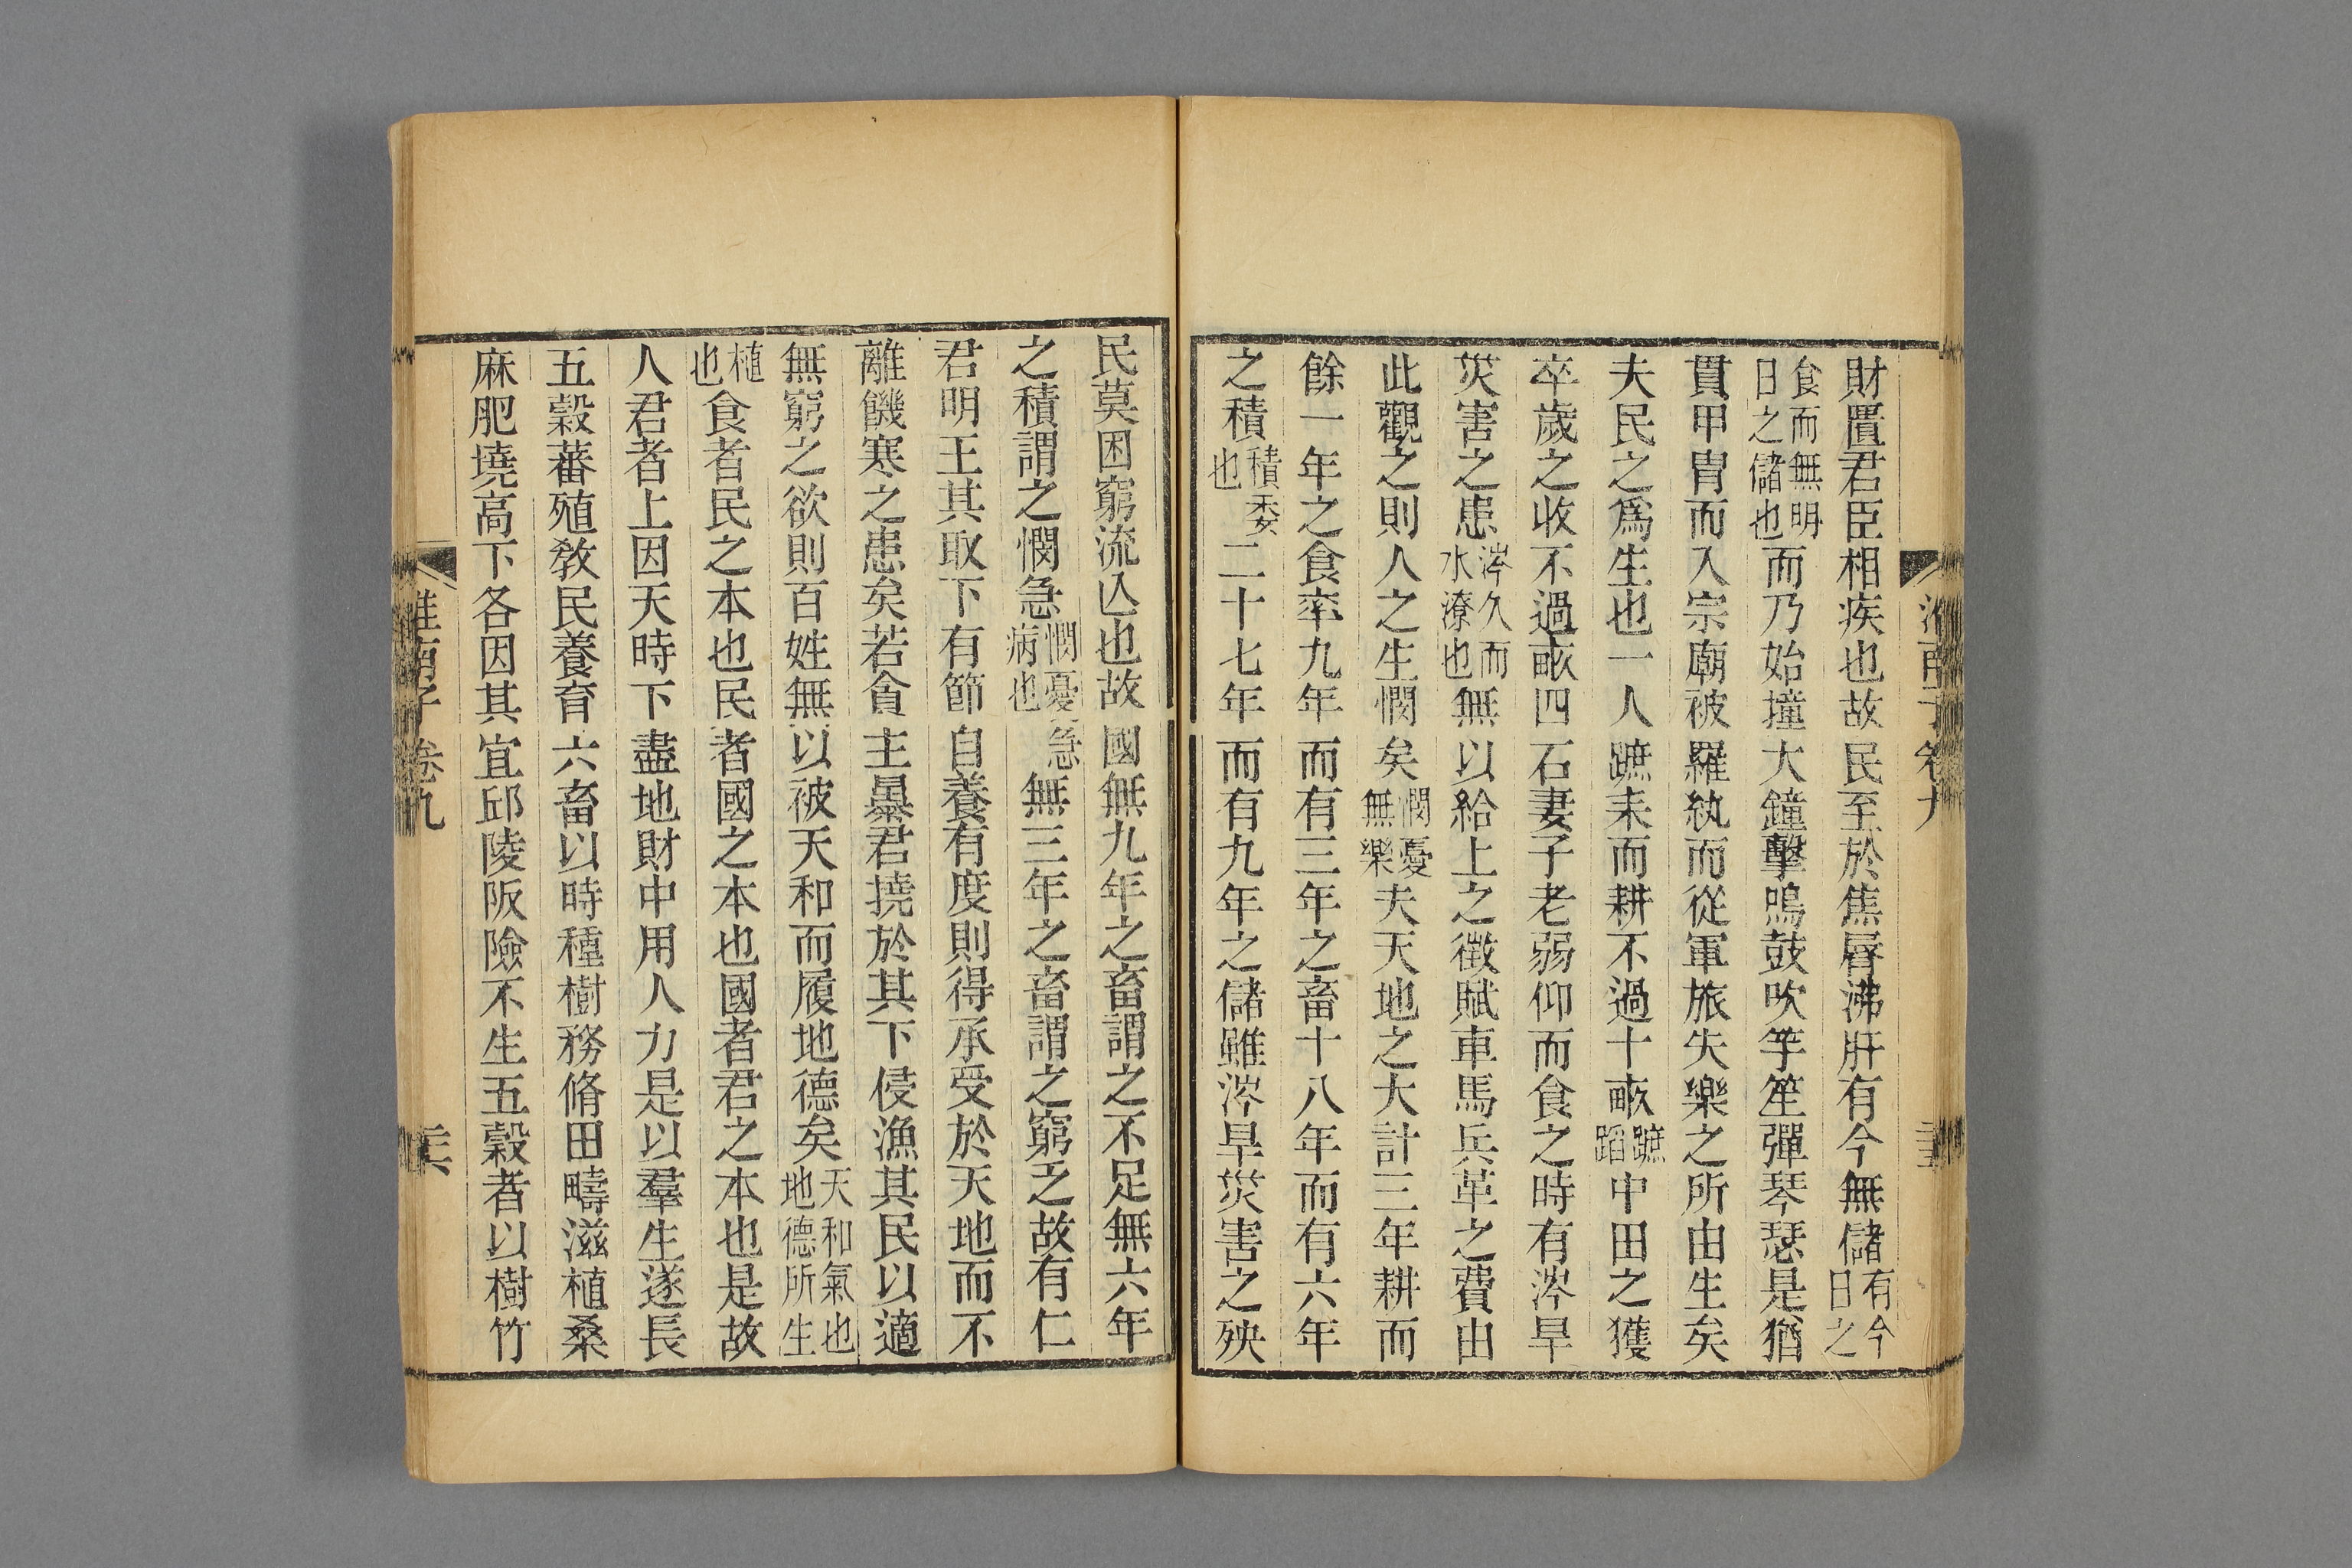 財匱君臣相疾也故民至於焦脣沸肝有今無儲有今日之
食而無明日之儲也而乃始撞大鐘擊鳴鼓吹竽笙彈琴瑟是猶
貫甲冑而入宗廟被羅紈而從軍旅失樂之所由生矣
夫民之爲生也一人蹠耒而耕不過十畝蹠蹈中田之獲
卒歲之收不過畝四石妻子老弱仰而食之時有涔旱
災害之患涔久而水潦也無以給上之徵賦車馬兵革之費由
此觀之則人之生憫矣憫憂無樂夫天地之大計三年耕而
餘一年之食率九年而有三年之畜十八年而有六年
之積積委也二十七年而有九年之儲雖涔旱災害之殃
民莫困窮流亾也故國無九年之畜謂之不足無六年
之積謂之憫急憫憂急病也無三年之畜謂之窮乏故有仁
君明王其取下有節自養有度則得承受於天地而不
離饑寒之患矣若貪主暴君撓於其下侵漁其民以適
無窮之欲則百姓無以被天和而履地德矣天和氣也地德所生
植也食者民之本也民者國之本也國者君之本也是故
人君者上因天時下盡地財中用人力是以羣生遂長
五穀蕃殖敎民養育六畜以時種樹務脩田疇滋植桑
麻肥墝高下各因其宜邱陵阪險不生五穀者以樹竹
淮南子 卷九